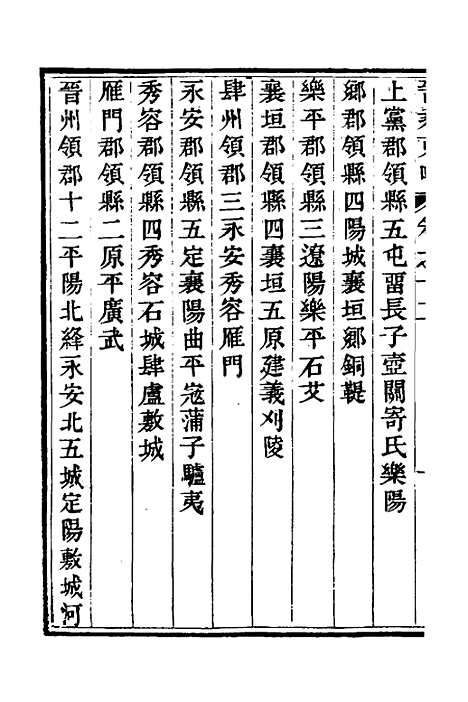 上黨郡領縣五屯畱長子壺關寄氏樂陽
鄉郡領縣四陽城襄垣鄉銅鞮
樂平郡領縣三遼陽樂平石艾
襄垣郡領縣四襄垣五原建義刈陵
肆州領郡三永安秀容雁門
永安郡領縣五定襄陽曲平宼蒲子驢夷
秀容郡領縣四秀容石城肆盧敷城
雁門郡領縣二原平廣武
晉州領郡十二平陽北絳永安北五城定陽敷城河